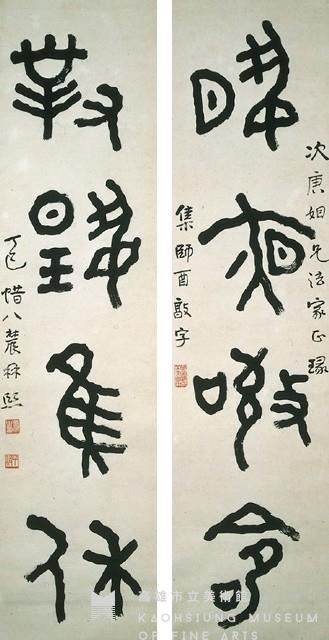 次庚姻兄法家正
夙夜敬命
集師酉敦字
對揚隹休
丁巳惜八農林熙
高雄市立美術館
KAOHSIUNG MUSEUM
OF FINE ARTS